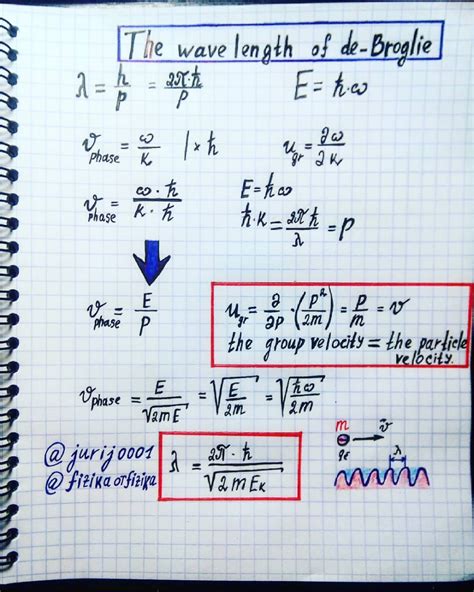 The wavelength of de-Broglie
λ = h/p = 2πħ/p    E = ħ·ω
v_phase = ω/k | × ħ    u_gr = ∂ω/∂k
v_phase = ω·ħ/k·ħ    E = ħω
ħ·k = 2πħ/λ = p
v_phase = E/p
u_gr = ∂/∂p·(p²/2m) = p/m = v
the group velocity = the particle
velocity.
v_phase = E/√2mE = √E/2m = √ħω/2m
@jurij0001
@fizikaotfizika
λ = 2π·ħ/√2mEk
m v
λ